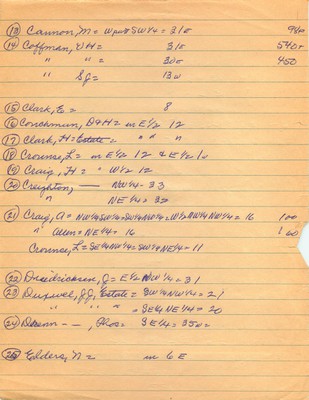 (13) Cannon, M = W part SW 1/4 = 31 E 980
(14) Coffman, D H = 31 E 540
" " = 30 E 450
" S J = 13 W
(15) Clark, E = 8
(16) Conchmun, D & H = on E 1/2 12
(17) Clark, H = Estate = " " "
(18) Crounse, L = on E 1/2 12 & E 1/2 10
(19) Craig, H = " W 1/2 12
(20) Creighton, — NW 1/4 - 33
" NE 1/4 = 32
(21) Craig, A = NW 1/4 SW 1/4 = SW 1/4 NW 1/4 = W 1/2 NW 1/4 NW 1/4 = 16 100
" Allen = NE 1/4 = 16 160
Crounse, L = SE 1/4 NW 1/4 = SW 1/4 NE 1/4 = 11
(22) Diedricksen, J = E 1/2 NW 1/4 = 31
(23) J J, Estate = SW 1/4 NW 1/4 = 21
" " " = SE 1/4 NE 1/4 = 20
(24) Dunn - - , Thos = SE 1/4 = 35
(25) Elders, N = in 6 E